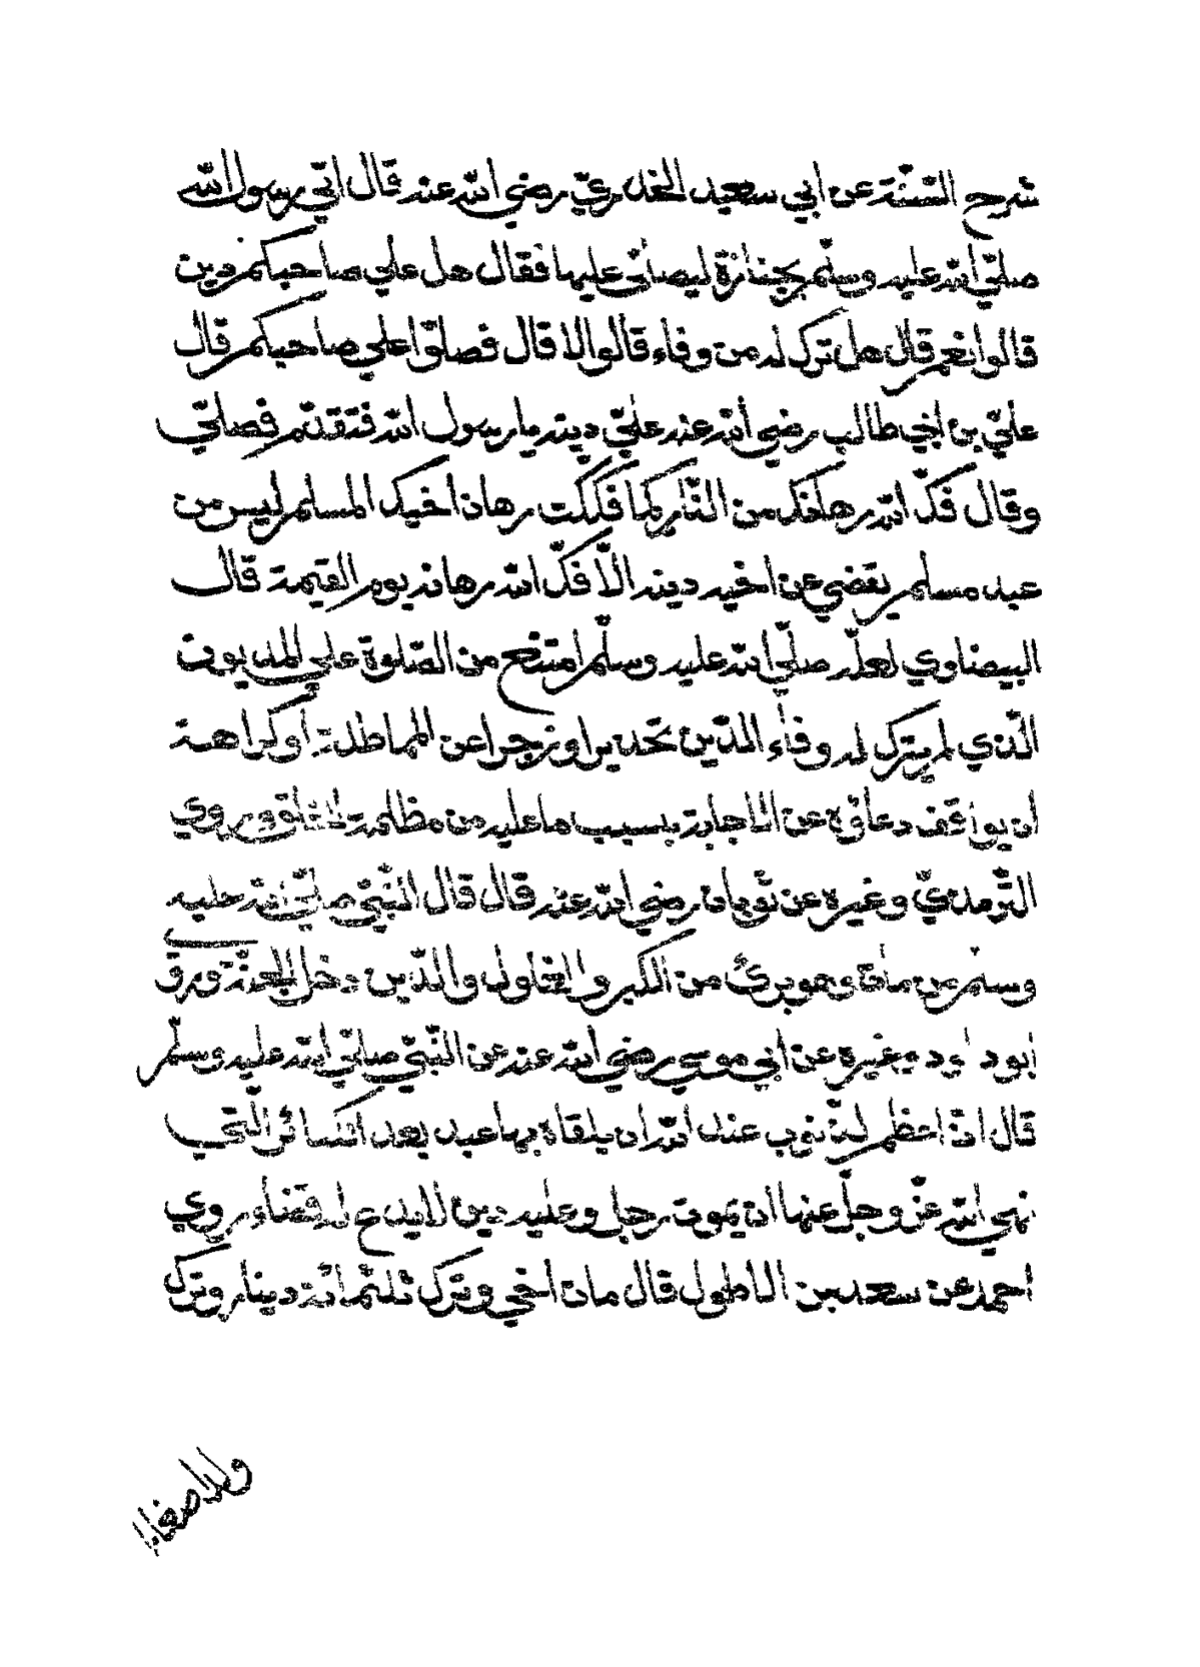 شرح السّنّة عن ابي سعيد الخدريّ رضي الله عنه قال اتي رسول الله
صلّي الله عليه وسلّم بجنازة ليصلّي عليها فقال هل علي صاحبكم دين
قالوا نعم قال هل ترك له من وفاء قالوا لا قال فصلّوا علي صاحبكم قال
عليّ بن ابي طالب رضي الله عنه عليّ دينه يا رسول الله فتقدّم فصلّي
وقال فكّ الله رهانك من النّار كما فككت رهان أخيك المسلم ليس من
عبد مسلم يقضي عن اخيه دينه الّا فكّ الله رهانه يوم القيمة قال
البيضاوي لعلّه صلّي الله عليه وسلّم امتنع من الصّلوة علي المديون
الّذي لم يترك له وفاء الدّين تحذيرا وزجرا عن المماطلة أو كراهة
ان يوقف دعاؤه عن الاجابة بسبب ما عليه من مظلمة الخلق وروي
التّرمذيّ وغيره عن ثوبان رضي الله عنه قال قال النّبيّ صلّي الله عليه
وسلم من مات وهو برئ من الكبر والغلول والدّين دخل الجنّة وروي
ابو داود وغيره عن ابي موسي رضي الله عنه عن النّبيّ صلّي الله عليه وسلّم
قال انّ اعظم الذّنوب عند الله ان يلقاه بها عبد بعد الكبائر الّتي
نهي الله عزّ وجلّ عنها ان يموت رجل وعليه دين لا يدع له قضاء وروي
احمد عن سعد بن الاطول قال مات أخي وترك ثلثمائة دينار وترك
ولدا صغارا